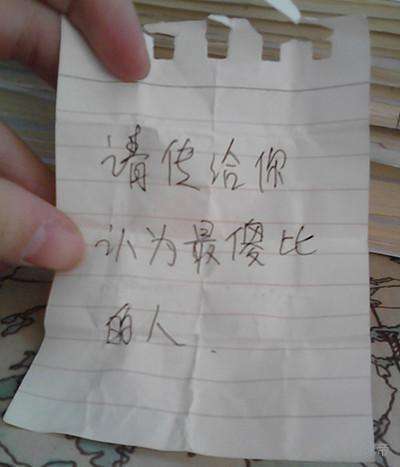 请传给你
认为最傻比
的人.